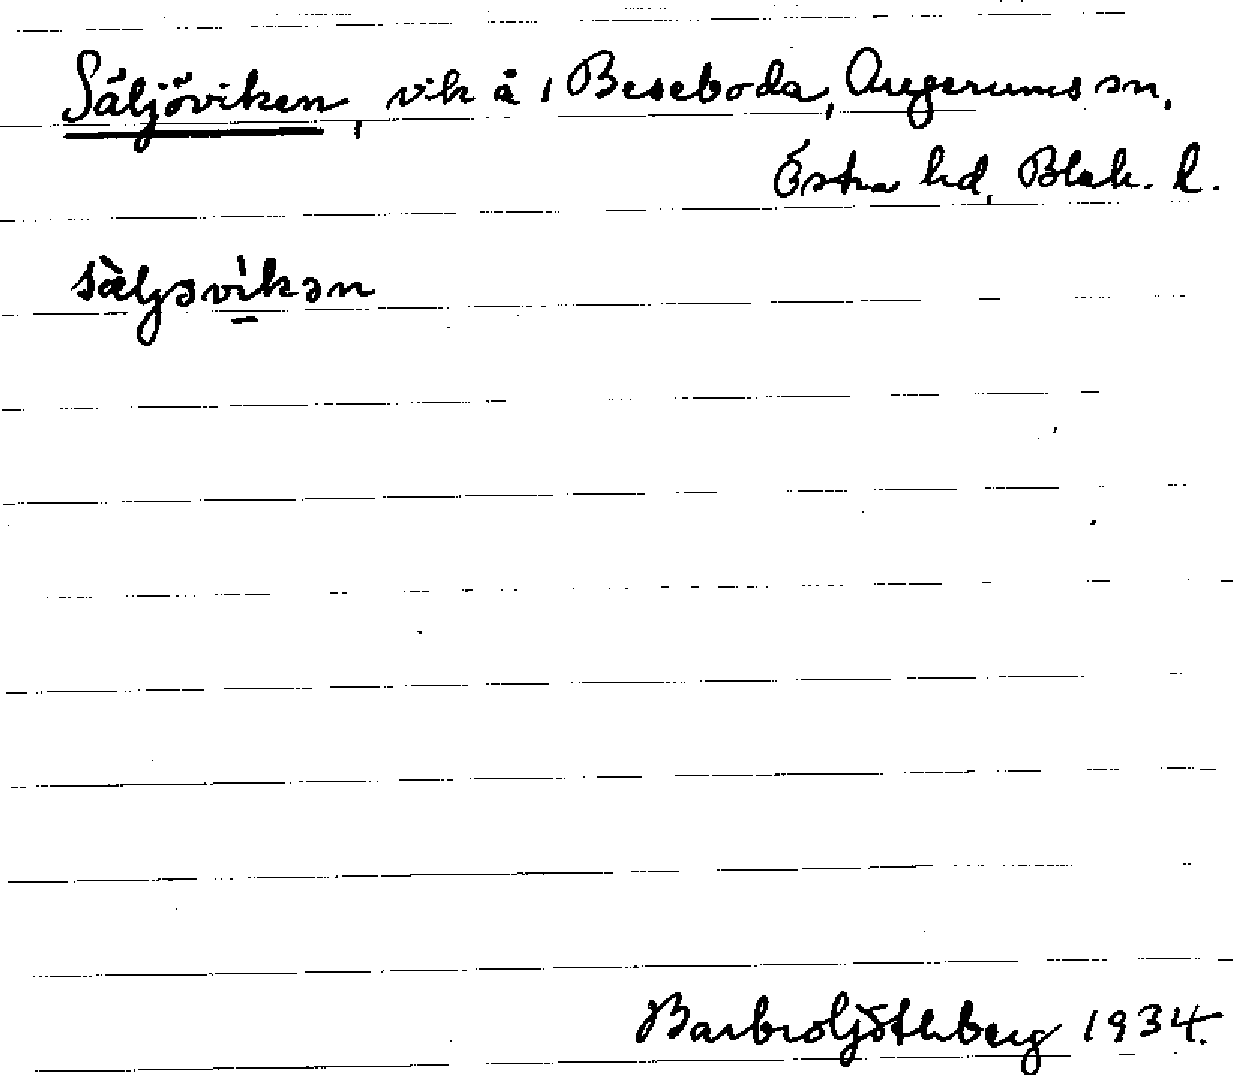 Säljöviken, vik å i Beseboda, Augerums sn,
Östra hd, Blek. l.
sàljəvíkən
Barbro Göthberg 1934.